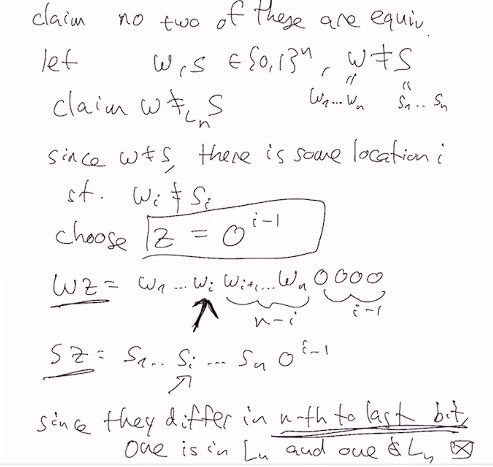 claim no two of these are equiv.
let w, s ∈ {0,1}ⁿ, w ≠ s
w₁...wₙ s₁...sₙ
claim w ≢_Lₙ s
since w ≠ s, there is some location i
st. wᵢ ≠ sᵢ
choose z = 0^{i-1}
wz = w₁ ... wᵢ wᵢ₊₁...wₙ 0000
n-i i-1
sz = s₁.. sᵢ ... sₙ 0^{i-1}
since they differ in n-th to last bit,
one is in Lₙ and one ∉ Lₙ ☒